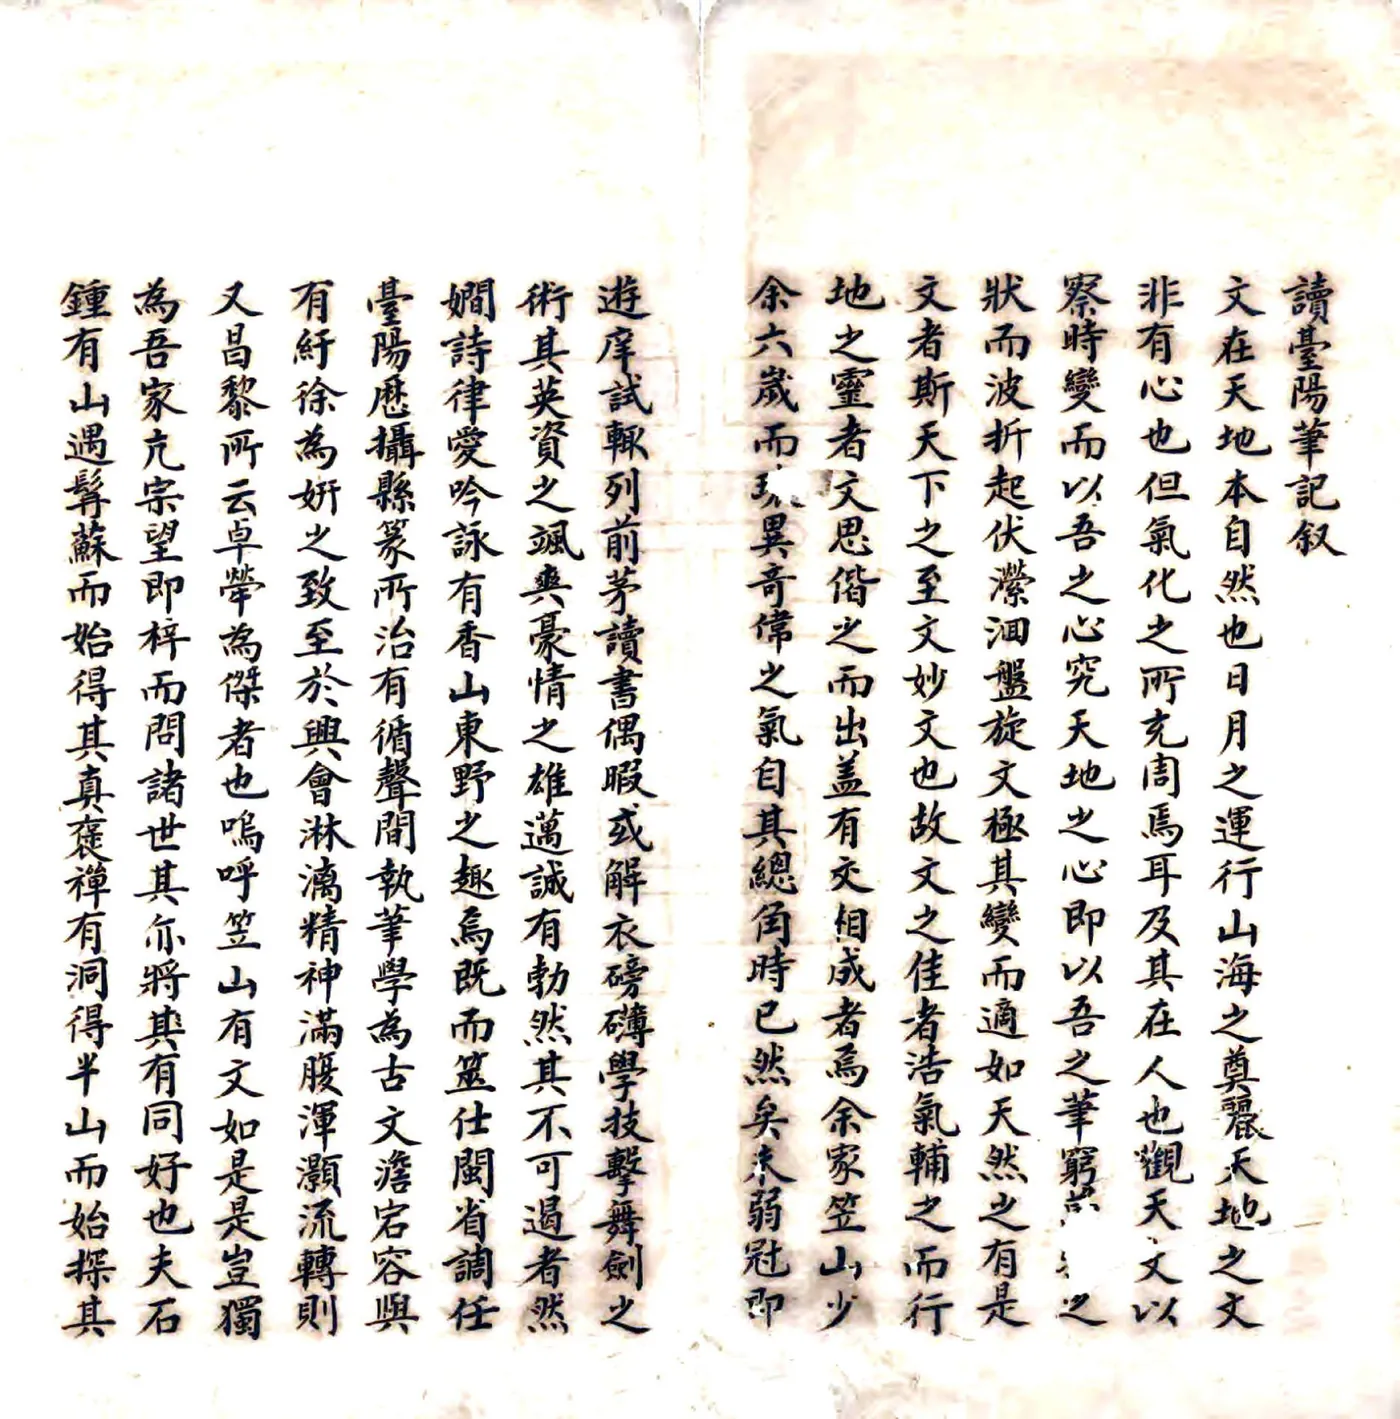 讀臺陽筆記叙
文在天地本自然也日月之運行山海之奠麗天地之文
非有心也但氣化之所充周焉耳及其在人也觀天文以
察時變而以吾之心究天地之心即以吾之筆窮之
狀而波折起伏瀠洄盤旋文極其變而適如天然之有是
文者斯天下之至文妙文也故文之佳者浩氣輔之而行
地之靈者文思偕之而出盖有交相成者焉余家笠山少
余六歲而異奇偉之氣自其總角時已然矣未弱冠即
遊庠試輙列前茅讀書偶暇或解衣磅礴學技擊舞劍之
術其英資之颯爽豪情之雄邁誠有勃然其不可遏者然
嫺詩律愛吟詠有香山東野之趣焉既而筮仕閩省調任
臺陽歷攝縣篆所治有循聲間執筆學為古文澹宕容與
有紆徐為妍之致至於興會淋漓精神滿腹渾灝流轉則
又昌黎所云卓犖為傑者也嗚呼笠山有文如是是豈獨
為吾家亢宗望即梓而問諸世其亦將其有同好也夫石
鍾有山遇髯蘇而始得其真褒禪有洞得半山而始探其